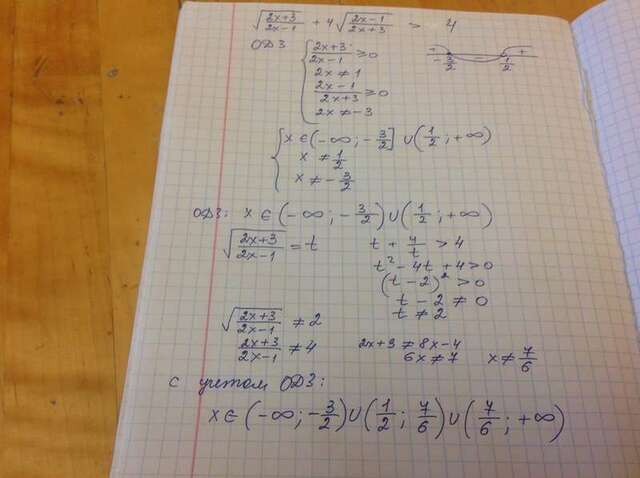 √((2x+3)/(2x-1)) + 4√((2x-1)/(2x+3)) > 4
ОДЗ { (2x+3)/(2x-1) ≥ 0
2x ≠ 1
(2x-1)/(2x+3) ≥ 0
2x ≠ -3
+ -3/2 - 1/2 +
{ x ∈ (-∞; -3/2] ∪ (1/2; +∞)
x ≠ 1/2
x ≠ -3/2
ОДЗ: x ∈ (-∞; -3/2) ∪ (1/2; +∞)
√((2x+3)/(2x-1)) = t t + 4/t > 4
t² - 4t + 4 > 0
(t-2)² > 0
t - 2 ≠ 0
t ≠ 2
√((2x+3)/(2x-1)) ≠ 2
(2x+3)/(2x-1) ≠ 4 2x+3 ≠ 8x-4
6x ≠ 7 x ≠ 7/6
с учетом ОДЗ:
x ∈ (-∞; -3/2) ∪ (1/2; 7/6) ∪ (7/6; +∞)